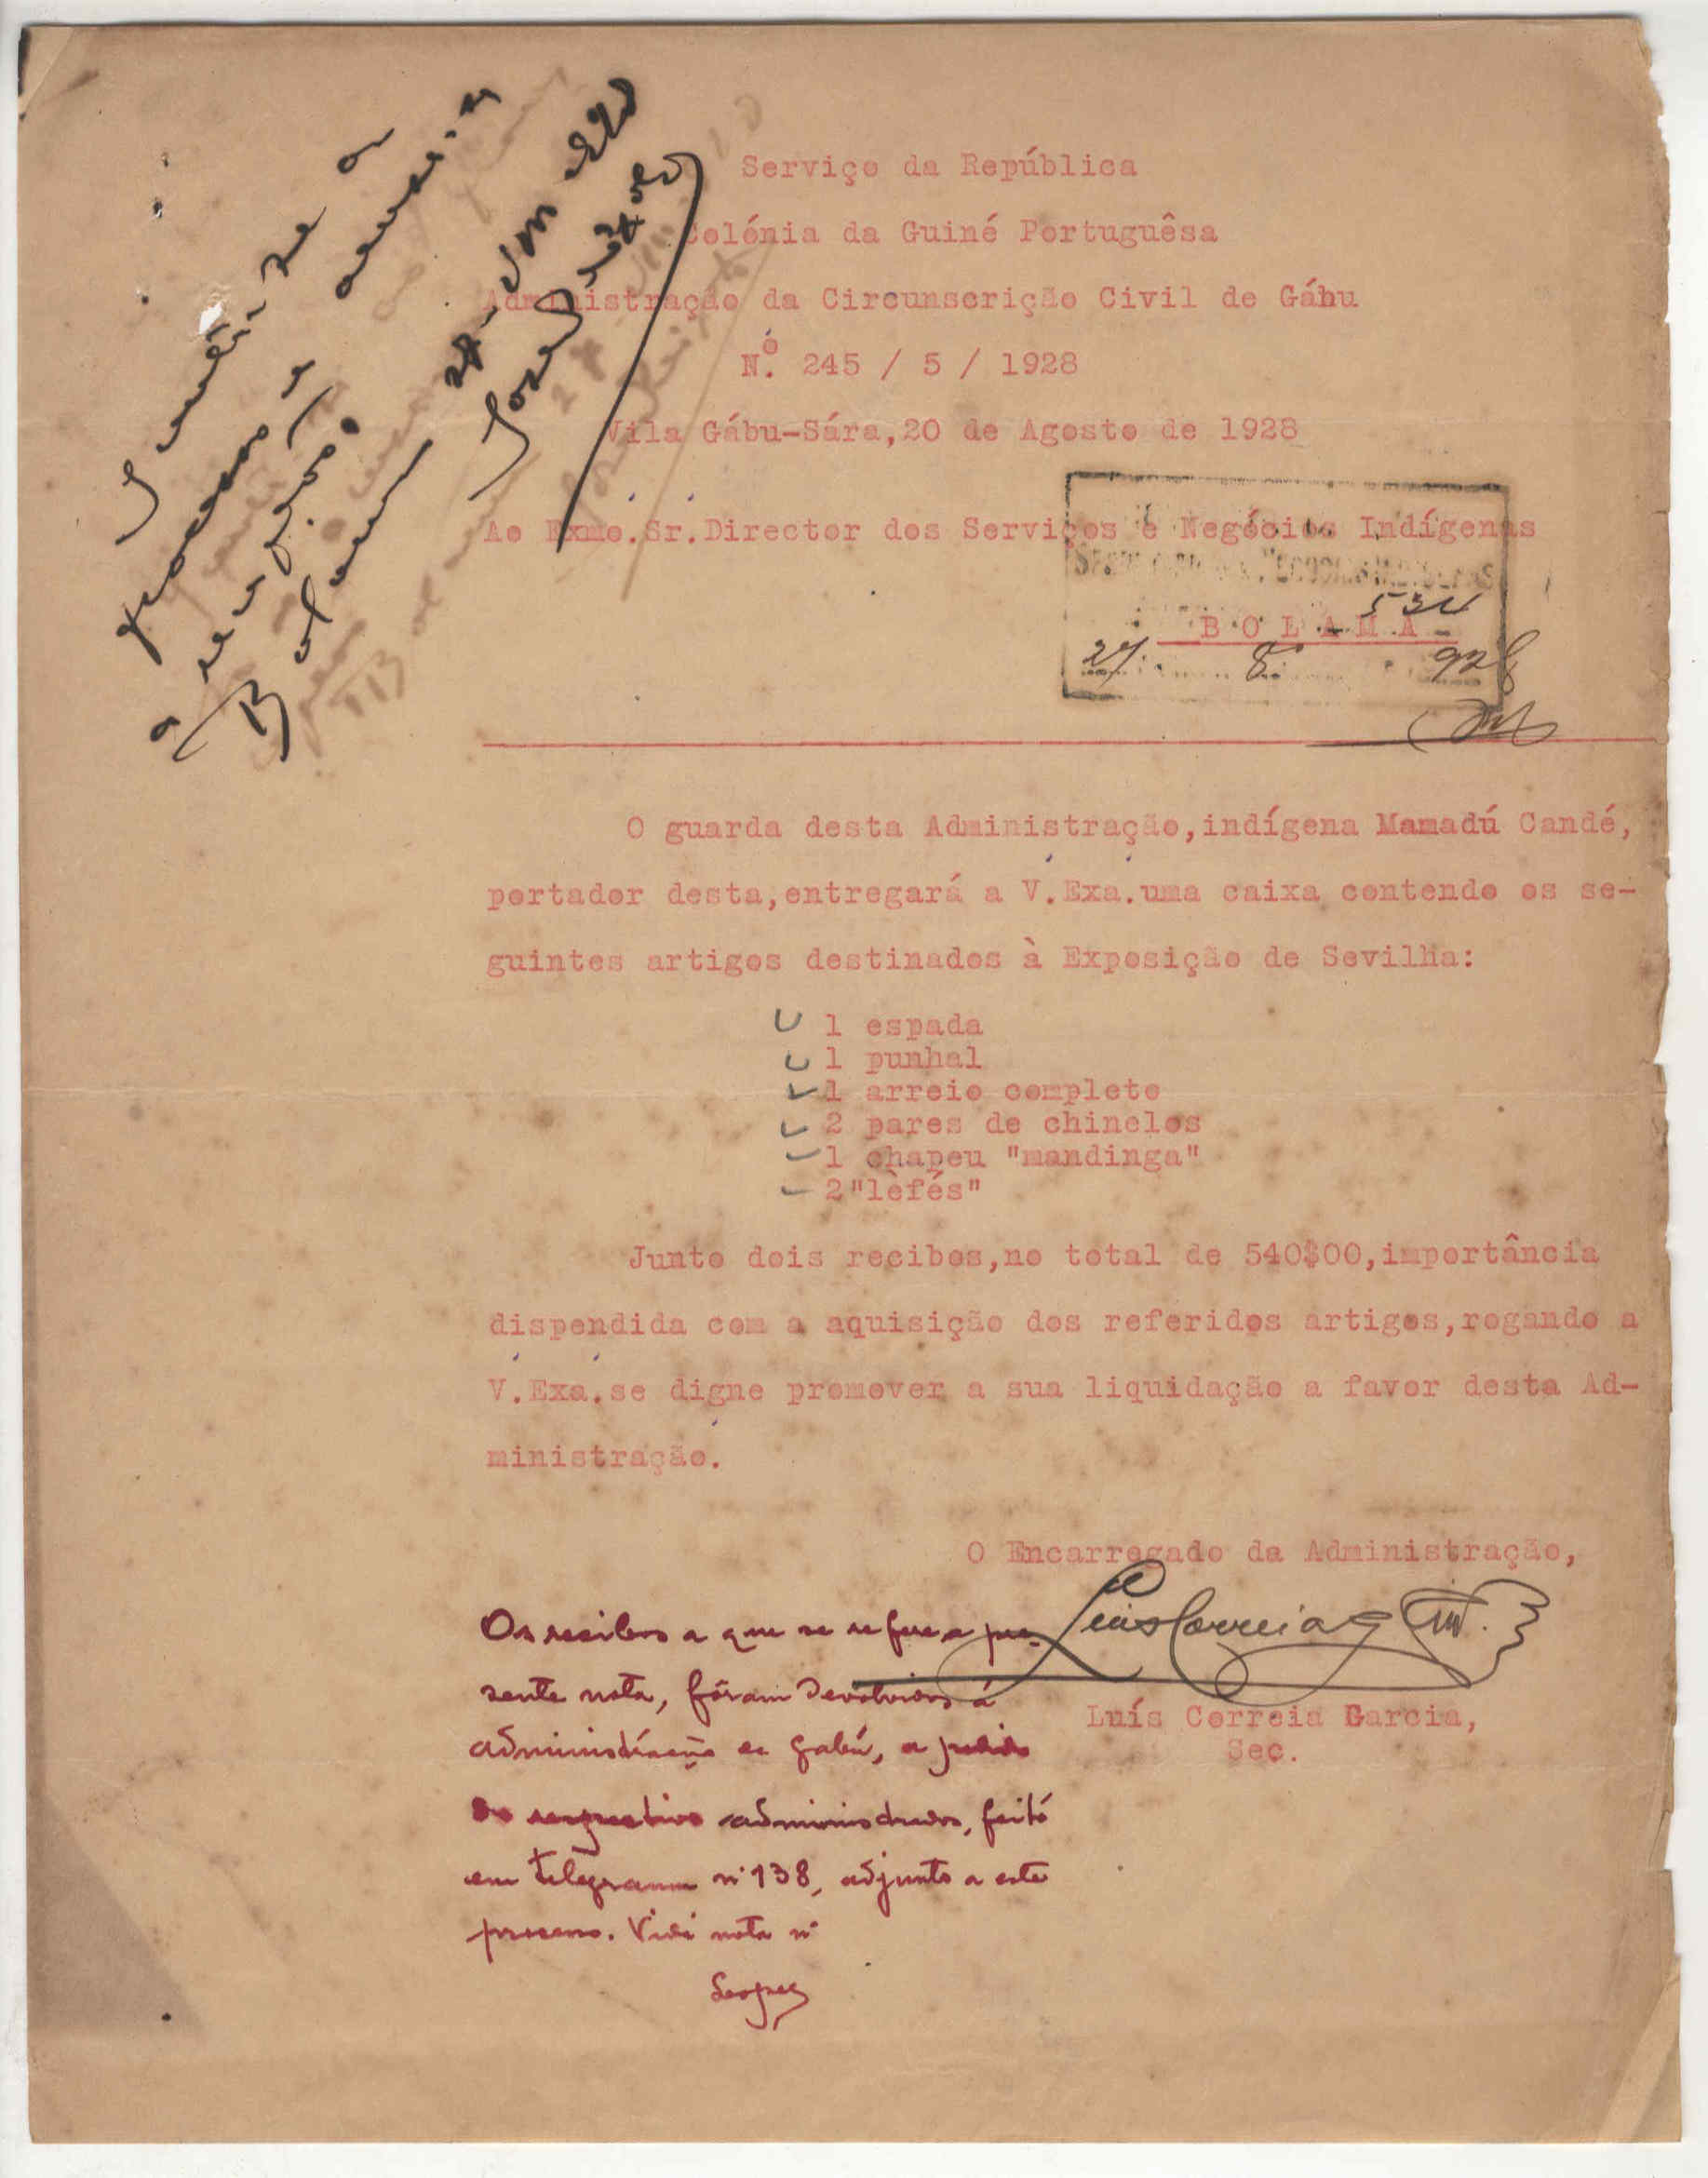 Serviço da República
Colónia da Guiné Portuguêsa
Administração da Circunscrição Civil de Gábu
Nº. 245 / 5 / 1928
Vila Gábu-Sára,20 de Agosto de 1928
Ao Exmo.Sr.Director dos Serviços e Negócios Indígenas
534
B O L A M A
27 8 928
O guarda desta Administração,indígena Mamadú Candé,
portador desta,entregará a V.Exa.uma caixa contendo os se-
guintes artigos destinados à Exposição de Sevilha:
1 espada
1 punhal
1 arreio completo
2 pares de chinelos
1 chapeu "mandinga"
2"lèfés"
Junto dois recibos,no total de 540$00,importância
dispendida com a aquisição dos referidos artigos,rogando a
V.Exa.se digne promover a sua liquidação a favor desta Ad-
ministração.
O Encarregado da Administração,
Luís Correia Garcia,
Sec.
Os recibos a que se refere a pre-
sente nota, fôram devolvidos á
administração de Gabú, a pedido
do respectivo administrador, feito
em telegrama nº 138, adjunto a este
processo. Vidé nota nº
Lopes